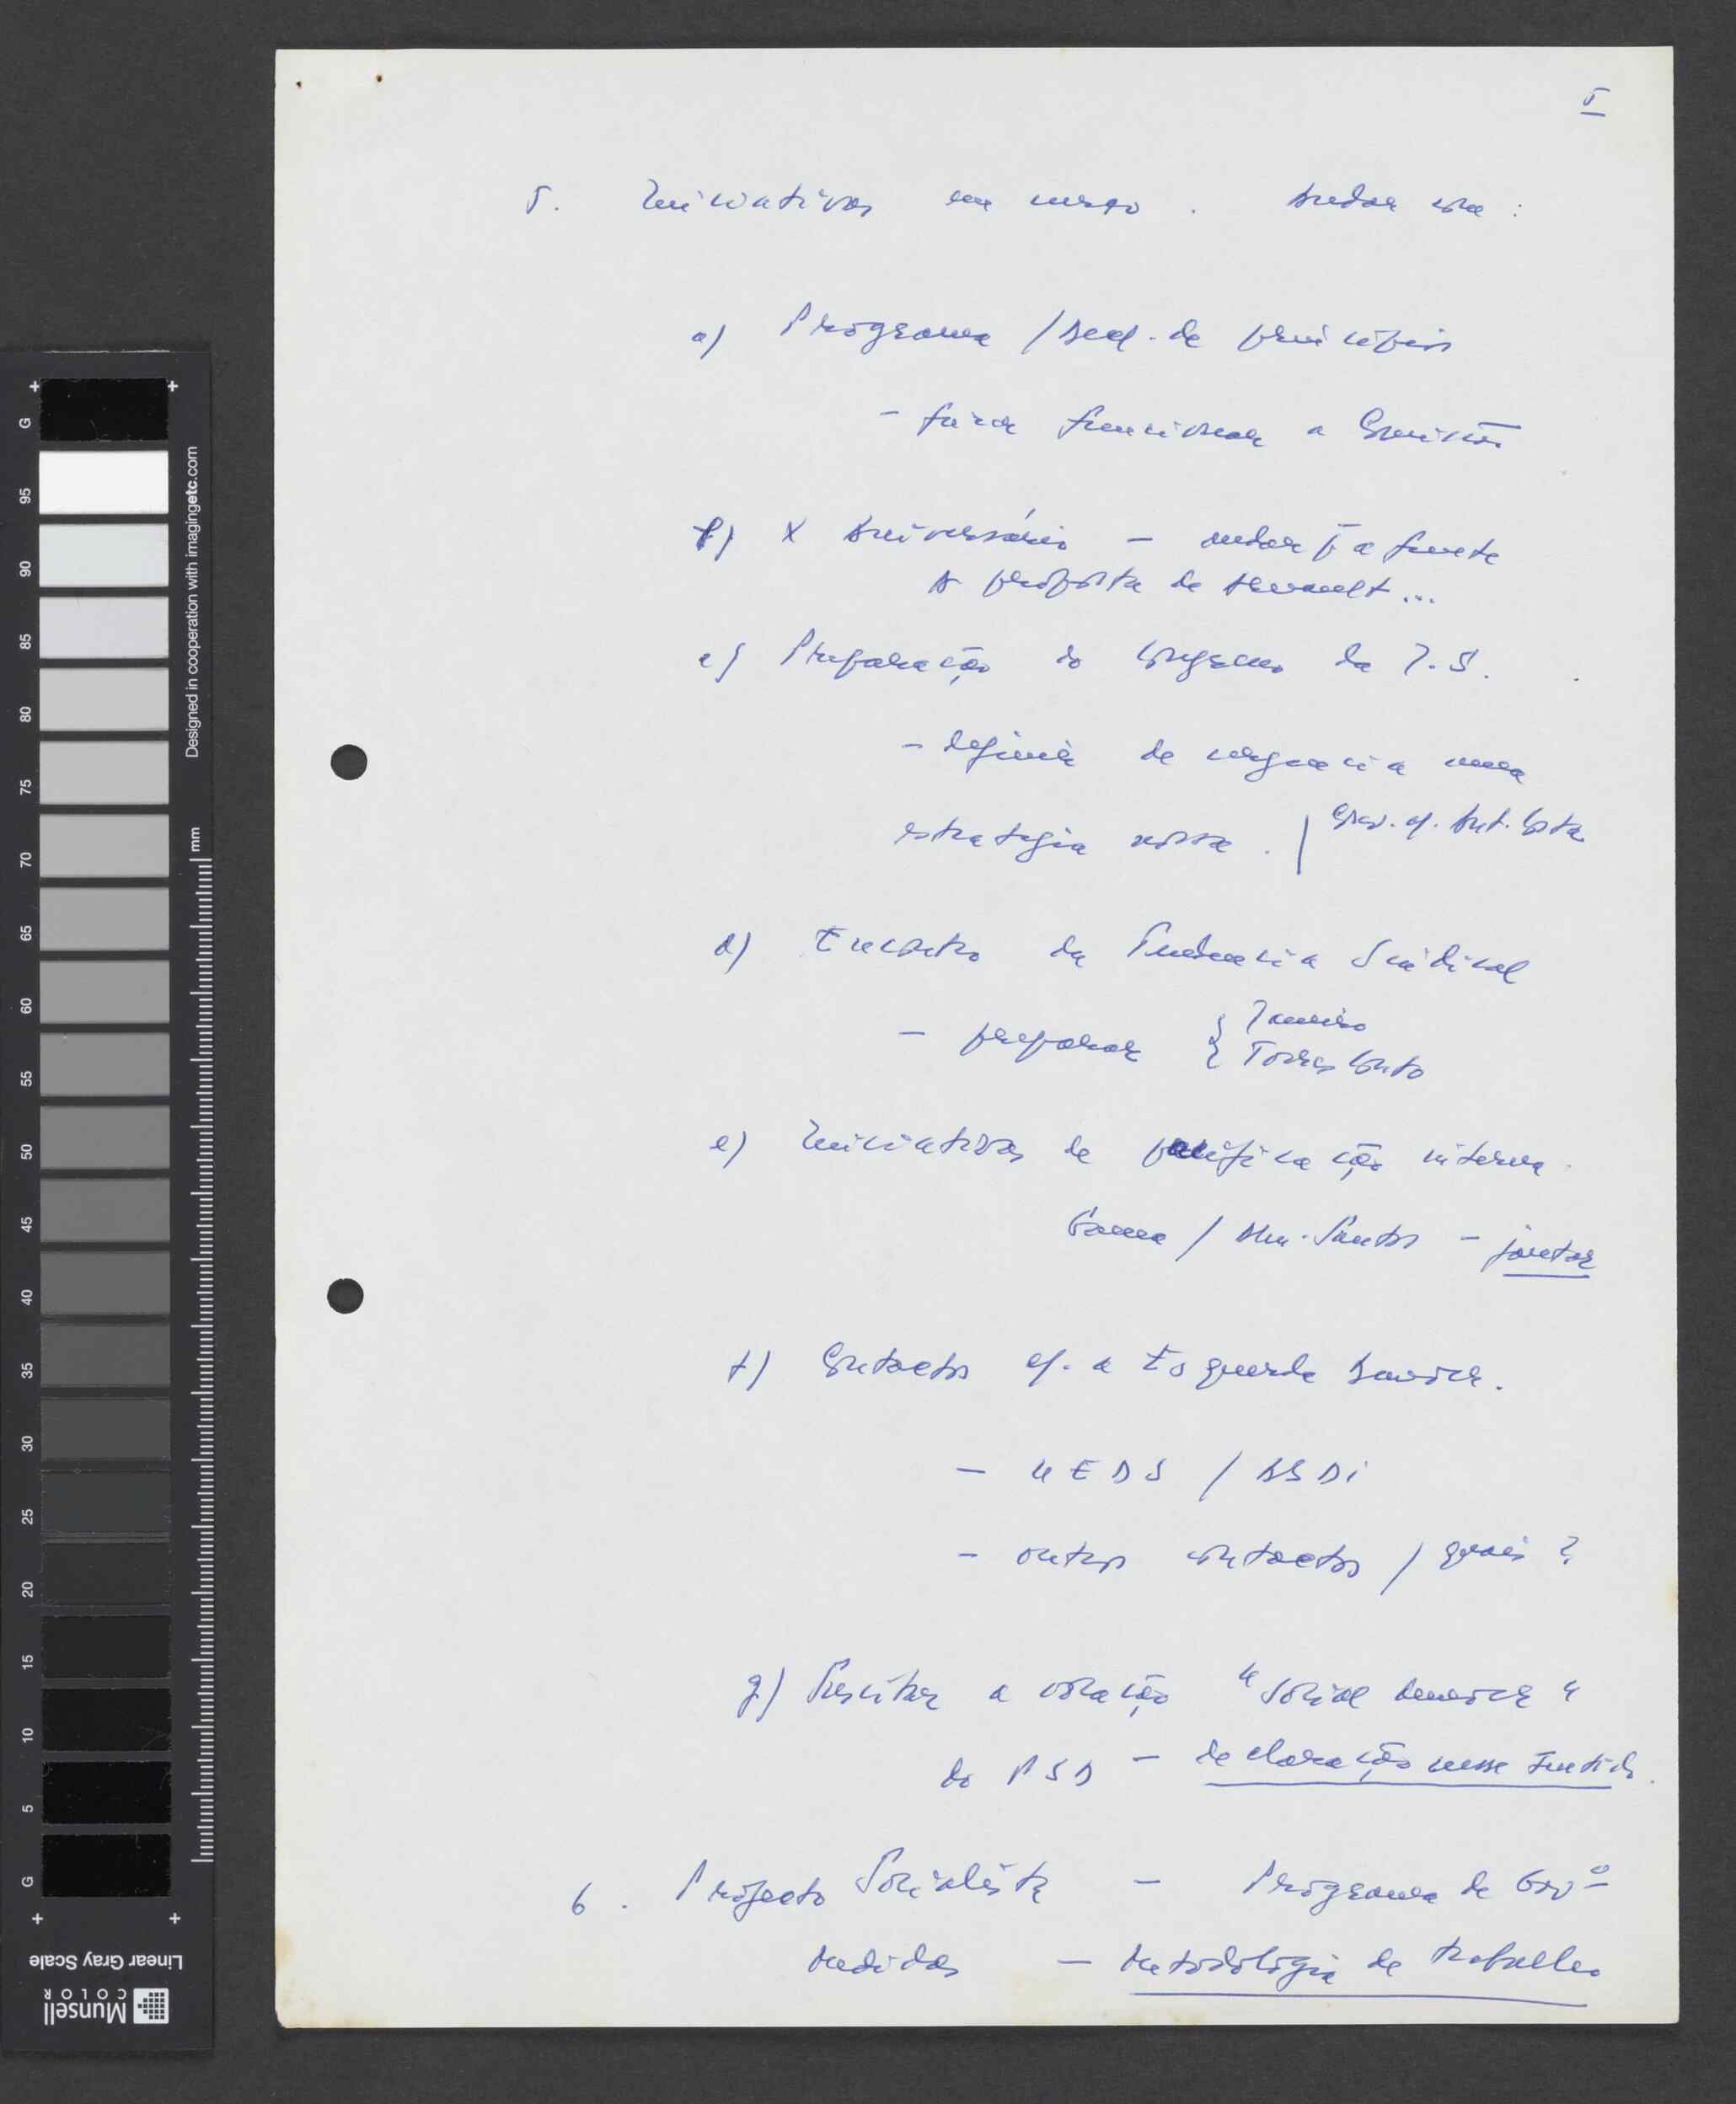 5
5. Iniciativas em curso. Andar com:
a) Programa / Decl. de princípios
- fazer funcionar a Comissão
b) X Aniversário - andar p.ª a frente
A proposta de
c) Preparação do Congresso da I.S.
- definir de urgência uma
estratégia nossa. | Conv. c/. Ant. Costa
d) Encontro da Tendência Sindical
- preparar { Janeiro
Torres Couto
e) Iniciativas de pacificação interna
Gama / Alm. Santos - jantar
f) Contactos c/. a Esquerda Democr.
- UEDS / ASDI
- outros contactos / quais?
g) Suscitar a "Social democr"
do PSD - declaração nesse sentido.
6. Projecto Socialista - Programa de Govº
Medidas - Metodologia de trabalho
G 95 90 85 80 75 70 65 60 55 50 45 40 35 30 25 20 15 10 5 G
Designed in cooperation with imagingetc.com
mm
Linear Gray Scale
Munsell
COLOR